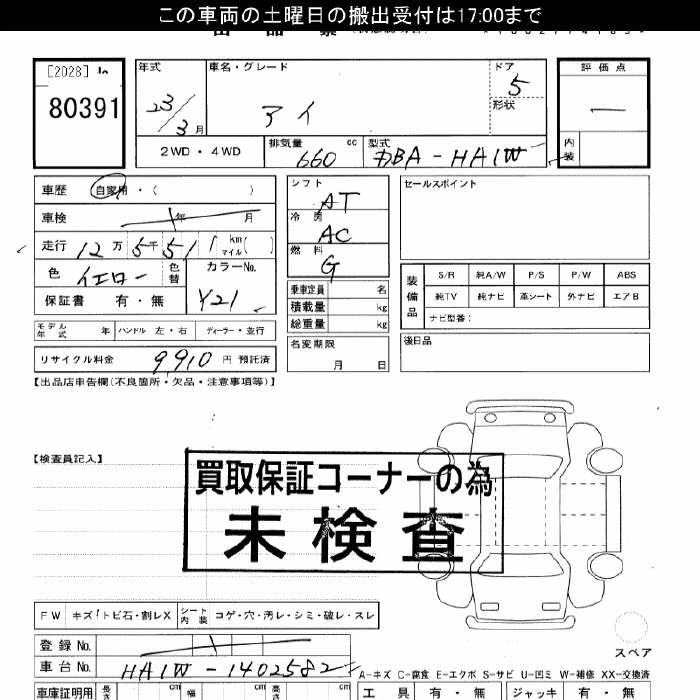 この車両の土曜日の搬出受付は17:00まで
[2028]
80391
年式
23/3月
車名・グレード
アイ
ドア
5
形状
評価点
—
内装
2WD・4WD
排気量
660 cc
型式
DBA-HA1W
車歴 自家用・( )
車検 年 月
走行 12万5千51 km マイル( )
色 イエロー 色替
カラーNo.
Y21
保証書 有・無
シフト
AT
冷房
AC
燃料
G
乗車定員 名
積載量 kg
総重量 kg
名変期限
月 日
セールスポイント
装備品
S/R 純A/W P/S P/W ABS
純TV 純ナビ 革シート 外ナビ エアB
ナビ型番:
後日品
モデル年式 年 ハンドル 左・右 ディーラー・並行
リサイクル料金 9910 円 預託済
【出品店申告欄(不良箇所・欠品・注意事項等)】
【検査員記入】
買取保証コーナーの為
未検査
FW キズ!トビ石・割レX シート内装 コゲ・穴・汚レ・シミ・破レ・スレ
スペア
登録No.
車台No. HA1W-1402582
A-キズ C-腐食 E-エクボ S-サビ U-凹ミ W-補修 XX-交換済
車庫証明用 長さ cm 幅 cm 高さ cm
工具 有・無 ジャッキ 有・無